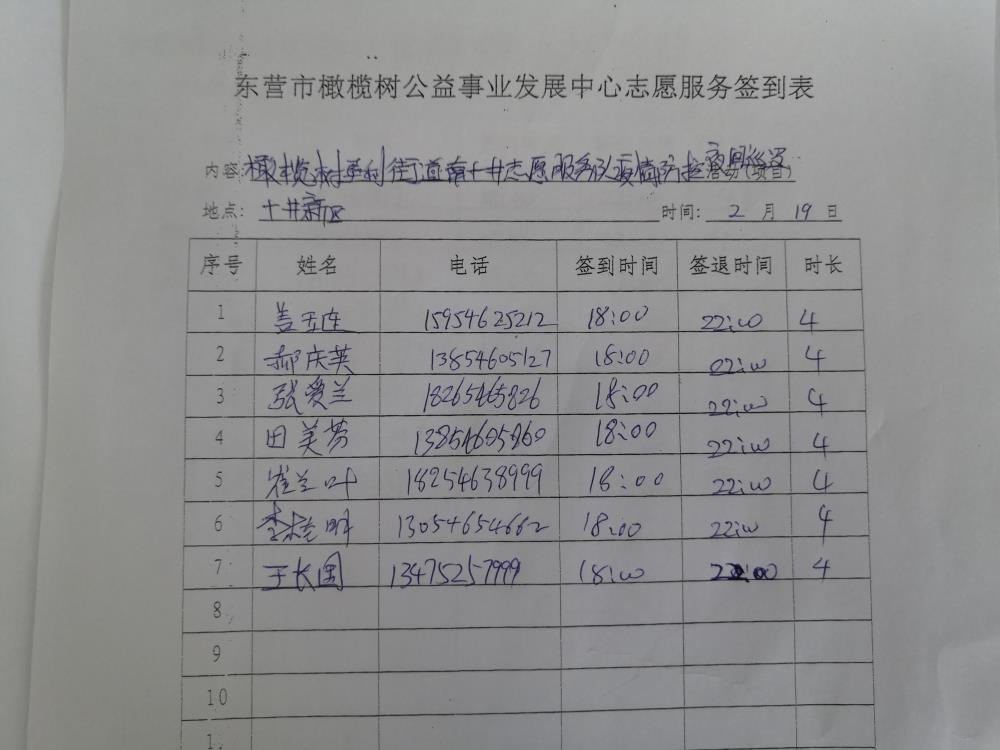 东营市橄榄树公益事业发展中心志愿服务签到表
内容:橄榄树垦利街道南十井志愿服务队疫情防控夜间巡逻活动(项目)
地点: 十井新区 时间: 2 月 19 日
序号 姓名 电话 签到时间 签退时间 时长
1 盖玉连 15954625212 18:00 22:00 4
2 郝庆英 13854605127 18:00 22:00 4
3 张爱兰 18265465826 18:00 22:00 4
4 田美芳 18:00 22:00 4
5 崔兰叶 18254638999 18:00 22:00 4
6 13054654662 18:00 22:00 4
7 王长国 13475257999 18:00 22:00 4
8
9
10